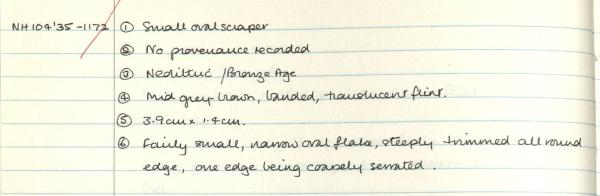 NH104'35-1172 ① Small oval scraper
② No provenance recorded
③ Neolithic / Bronze Age
④ Mid grey brown, banded, translucent flint.
⑤ 3.9cm x 1.4cm.
⑥ Fairly small, narrow oval flake, steeply trimmed all round
edge, one edge being coarsely serrated.